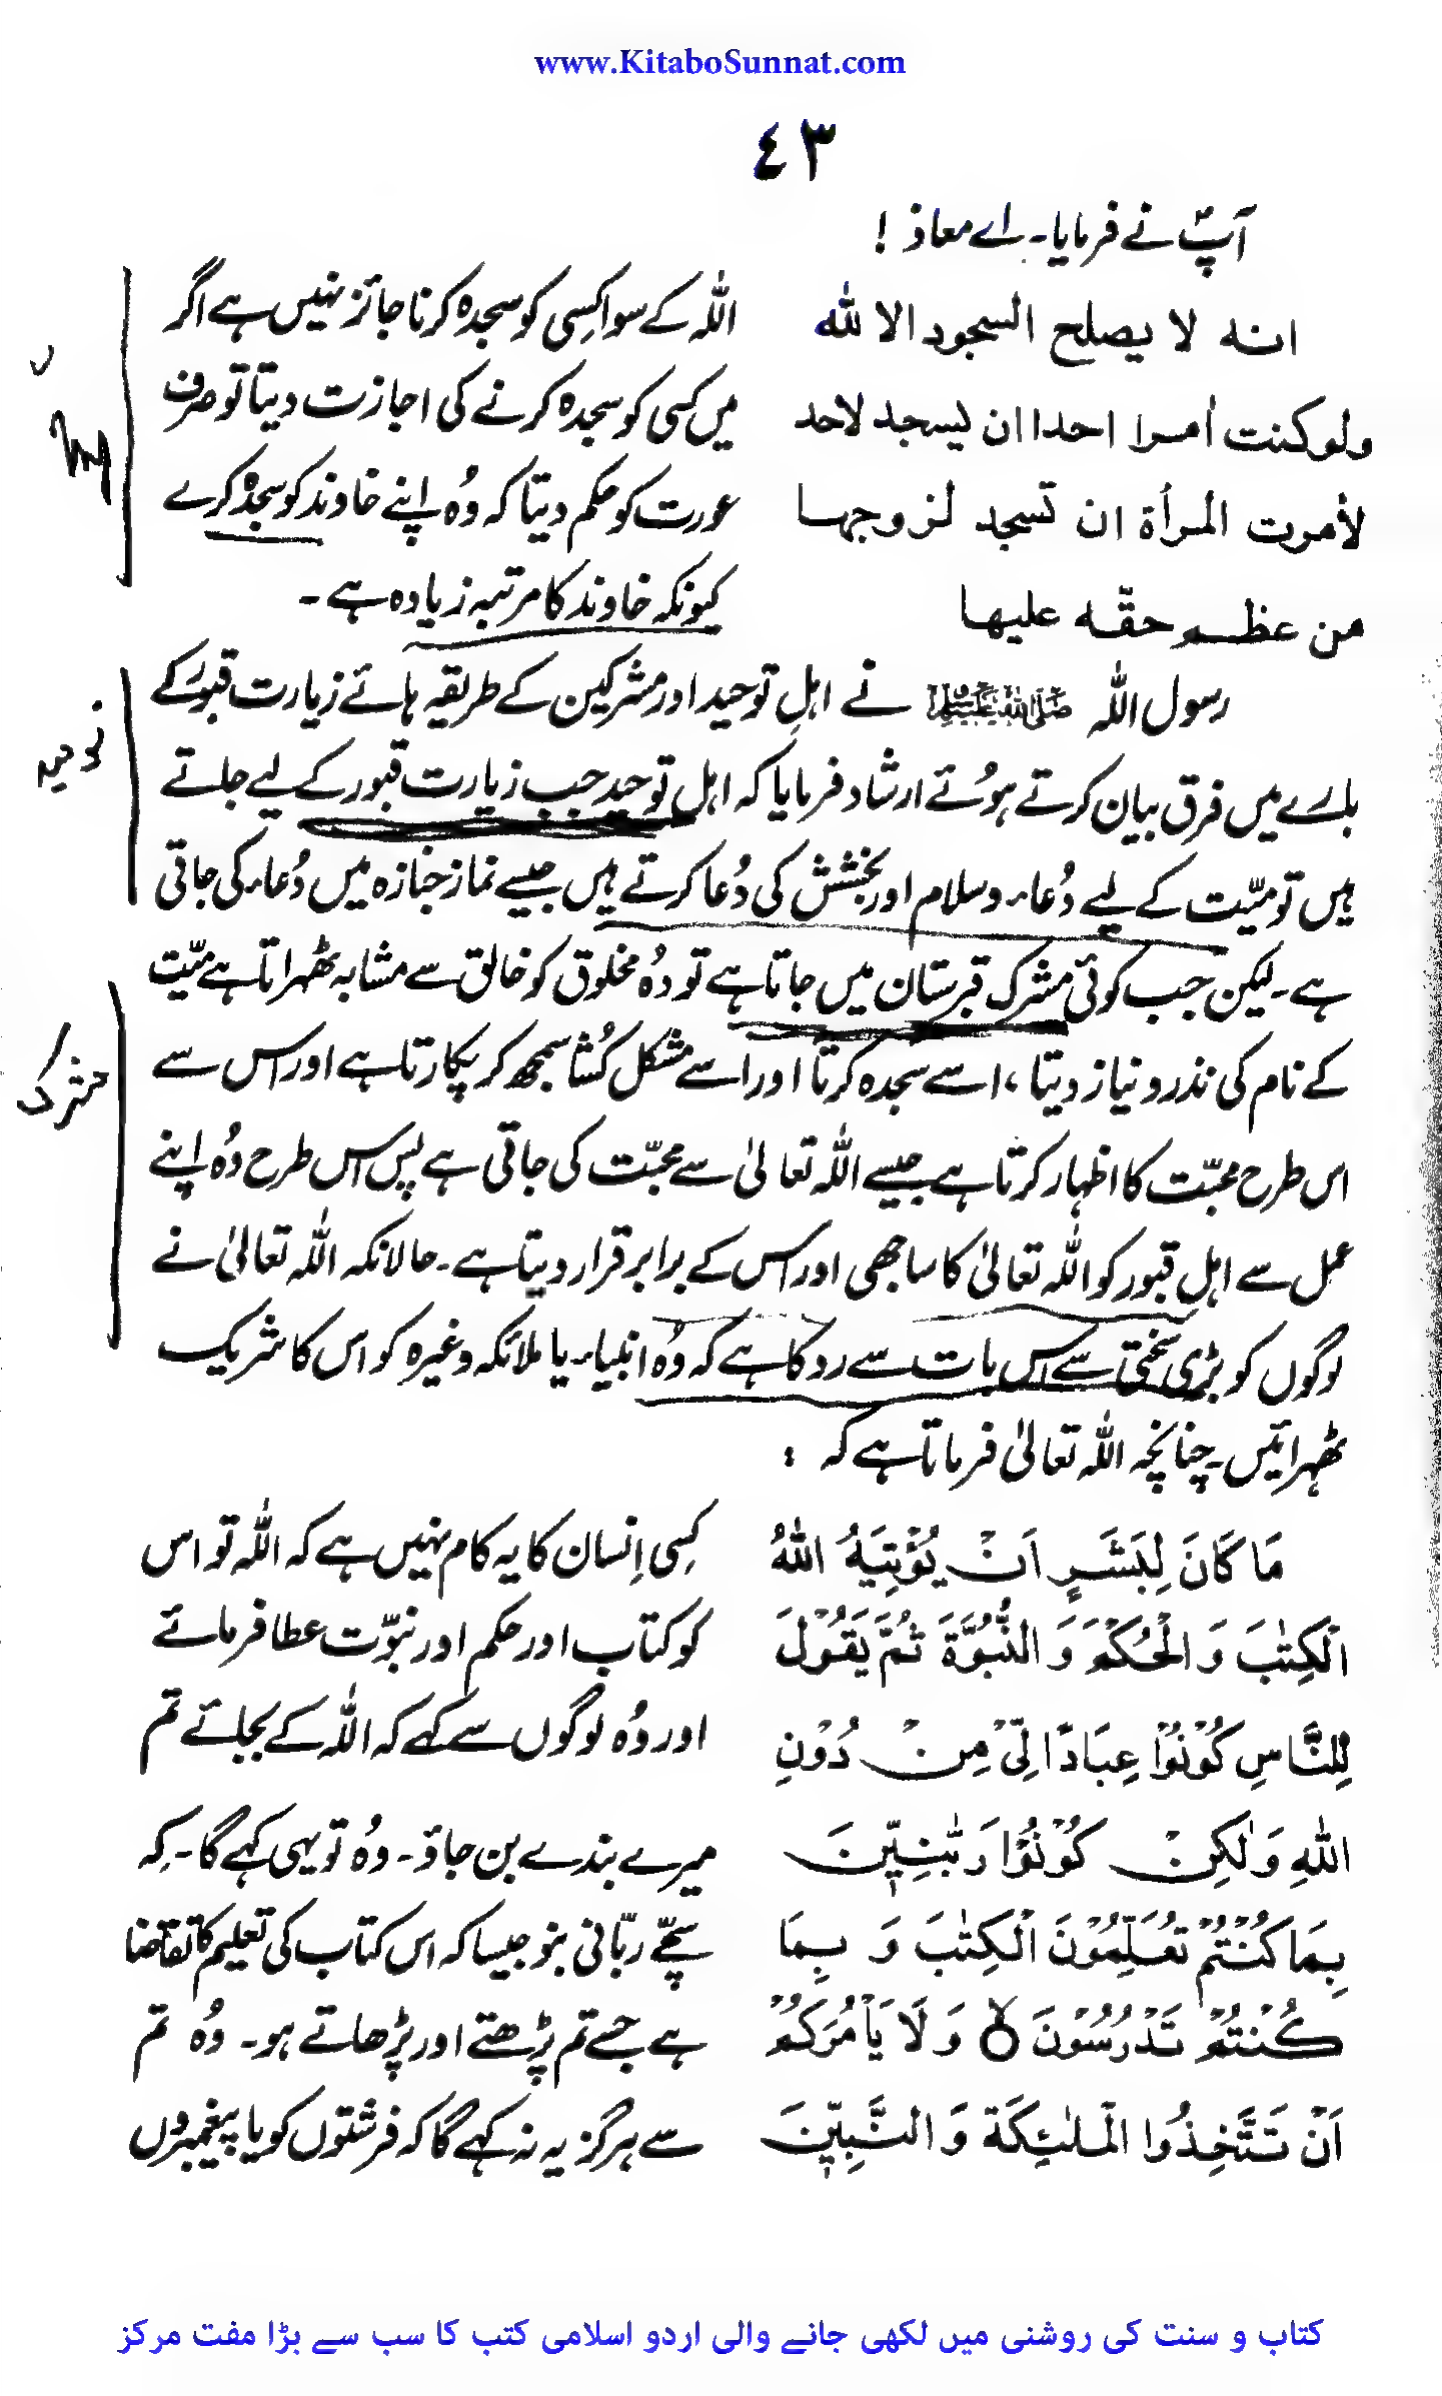 www.KitaboSunnat.com
٤٣
آپؐ نے فرمایا۔ اے معاذ !
انه لا يصلح السجود الا لله
ولو كنت أمرا احدا ان يسجد لاحد
لأمرت المرأة ان تسجد لزوجها
من عظم حقّه عليها
اللہ کے سوا کسِی کو سجدہ کرنا جائز نہیں ہے اگر
میں کسی کو سجدہ کرنے کی اجازت دیتا تو صرف
عورت کو حکم دیتا کہ وُہ اپنے خاوند کو سجدہ کرے
کیونکہ خاوند کا مرتبہ زیادہ ہے ۔
رسول اللہ ﷺ نے اہلِ توحید اور مشرکین کے طریقہ ہائے زیارت قبوُر کے
بارے میں فرق بیان کرتے ہوُئے ارشاد فرمایا کہ اہلِ توحید جب زیارت قبور کے لیے جاتے
ہیں تو میّت کے لیے دُعاء وسلام اور بخشش کی دُعا کرتے ہیں جیسے نماز جنازہ میں دُعاء کی جاتی
ہے۔ لیکن جب کوئی مشرک قبرستان میں جاتا ہے تو وُہ مخلوق کو خالق سے مشابہ ٹھہراتا ہے میّت
کے نام کی نذر و نیاز دیتا ، اسے سجدہ کرتا اور اسے مشکل کُشا سمجھ کر پکارتا ہے اور اس سے
اس طرح محبّت کا اظہار کرتا ہے جیسے اللہ تعالیٰ سے محبّت کی جاتی ہے پس اس طرح وُہ اپنے
عمل سے اہلِ قبور کو اللہ تعالیٰ کا ساجھی اور اس کے برابر قرار دیتا ہے۔ حالانکہ اللہ تعالیٰ نے
لوگوں کو بڑی سختی سے اس بات سے روکا ہے کہ وُہ انبیاء یا ملائکہ وغیرہ کو اس کا شریک
ٹھہرائیں۔ چنانچہ اللہ تعالیٰ فرماتا ہے کہ :
مَا كَانَ لِبَشَرٍ اَنْ يُّؤْتِيَهُ اللّٰهُ
الْكِتٰبَ وَ الْحُكْمَ وَ النُّبُوَّةَ ثُمَّ يَقُوْلَ
لِلنَّاسِ كُوْنُوْا عِبَادًا لِّيْ مِنْ دُوْنِ
اللّٰهِ وَلٰكِنْ كُوْنُوْا رَبّٰنِيّٖنَ
بِمَا كُنْتُمْ تُعَلِّمُوْنَ الْكِتٰبَ وَ بِمَا
كُنْتُمْ تَدْرُسُوْنَ ۝ وَ لَا يَاْمُرَكُمْ
اَنْ تَتَّخِذُوا الْمَلٰٓئِكَةَ وَ النَّبِيّٖنَ
کسِی اِنسان کا یہ کام نہیں ہے کہ اللہ تو اس
کو کتاب اور حکم اور نبوّت عطا فرمائے
اور وُہ لوگوں سے کہے کہ اللہ کے بجائے تم
میرے بندے بن جاؤ۔ وُہ تو یہی کہے گا۔ کہ
سچّے ربّانی بنو جیسا کہ اس کتاب کی تعلیم کا تقاضا
ہے جسے تم پڑھتے اور پڑھاتے ہو۔ وُہ تم
سے ہرگز یہ نہ کہے گا کہ فرشتوں کو یا پیغمبروں
توحید
مشرک
کتاب و سنت کی روشنی میں لکھی جانے والی اردو اسلامی کتب کا سب سے بڑا مفت مرکز